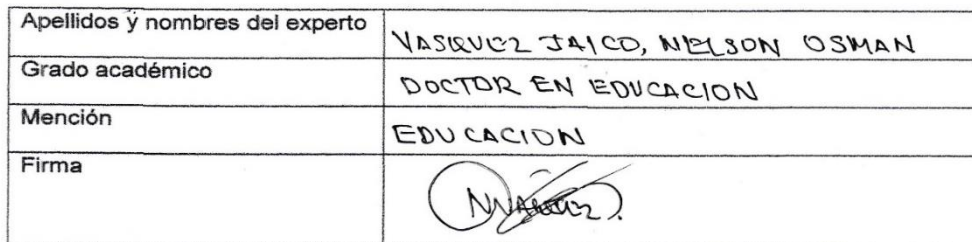 Apellidos y nombres del experto
VASQUEZ JAICO, NELSON OSMAN
Grado académico
DOCTOR EN EDUCACION
Mención
EDUCACION
Firma